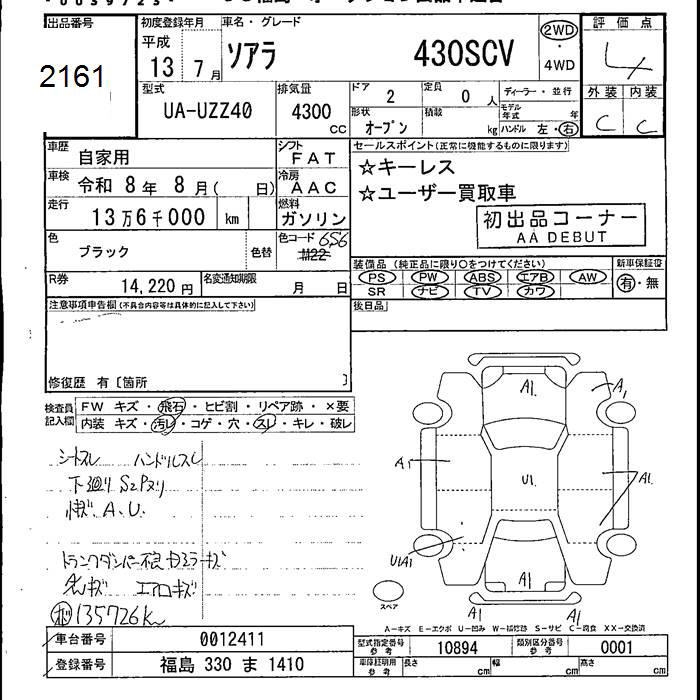 出品番号
2161
初度登録年月
平成
13 7月
車名・グレード
ソアラ 430SCV
2WD
・
4WD
評価点
4
外装 内装
C C
型式
UA-UZZ40
排気量
4300
CC
ドア 2
定員 0 人
ディーラー・並行
モデル年式 年
形状
オープン
積載 kg
ハンドル 左・右
車歴
自家用
シフト
FAT
車検
令和 8年 8月( 日)
冷房
AAC
走行
13万6千000 km
燃料
ガソリン
色
ブラック
色替
色コード 656
R券
14,220円
名変通知期限
月 日
セールスポイント(正常に機能するものに限ります)
☆キーレス
☆ユーザー買取車
初出品コーナー
AA DEBUT
装備品(純正品に限り○をつけてください)
PS PW ABS エアB AW
SR ナビ TV カワ
新車保証書
有・無
後日品
注意事項申告欄(不具合内容等は具体的に記入して下さい)
修復歴 有〔箇所 〕
検査員記入欄
FW キズ・飛石・ヒビ割・リペア跡・×要
内装 キズ・汚レ・コゲ・穴・スレ・キレ・破レ
シートスレ ハンドルスレ
下廻りSZPヌリ
A.U.
トランクダンパー不良
エアロキズ
135726km
A1
A1
A1
A1
U1
U1A1
A1
A1
A1
スペア
A−キズ E−エクボ U−凹み W−補修跡 S−サビ C−腐食 XX−交換済
車台番号 0012411
登録番号 福島 330 ま 1410
型式指定番号
参考
10894
類別区分番号
参考
0001
車庫証明用
参考
長さ cm 幅 cm 高さ cm